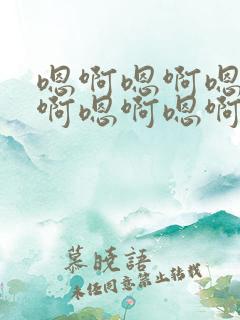 嗯啊嗯啊嗯
啊嗯啊嗯啊
慕晓語
未经同意禁止转载